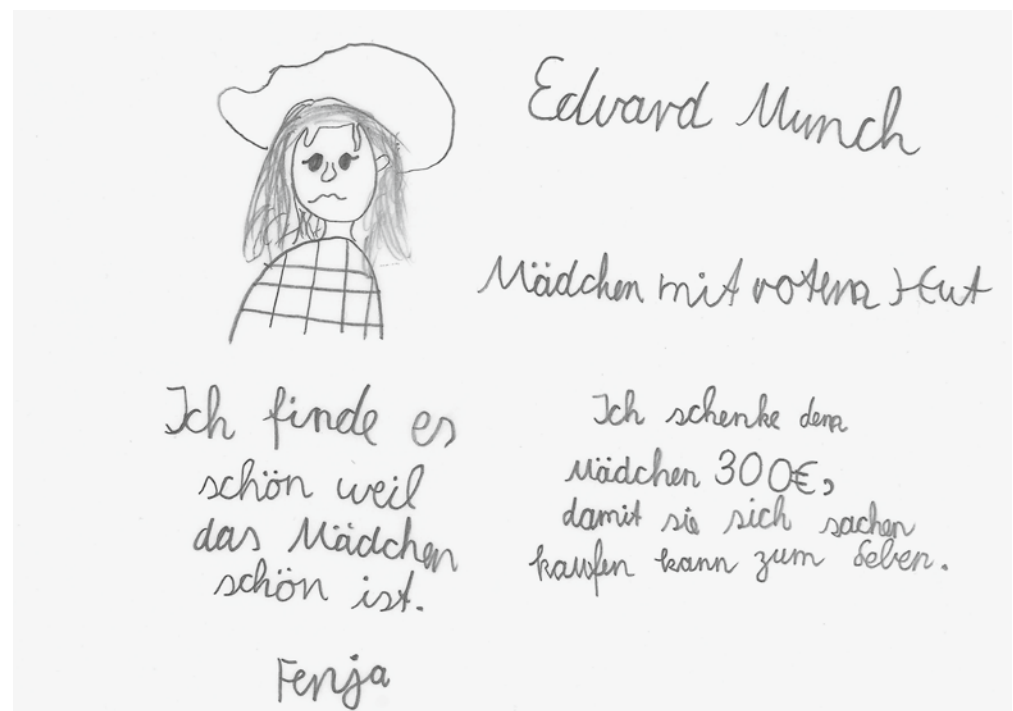 Edvard Munch
Mädchen mit rotem Hut
Ich finde es
schön weil
das Mädchen
schön ist.
Fenja
Ich schenke dem
Mädchen 300€,
damit sie sich sachen
kaufen kann zum Leben.